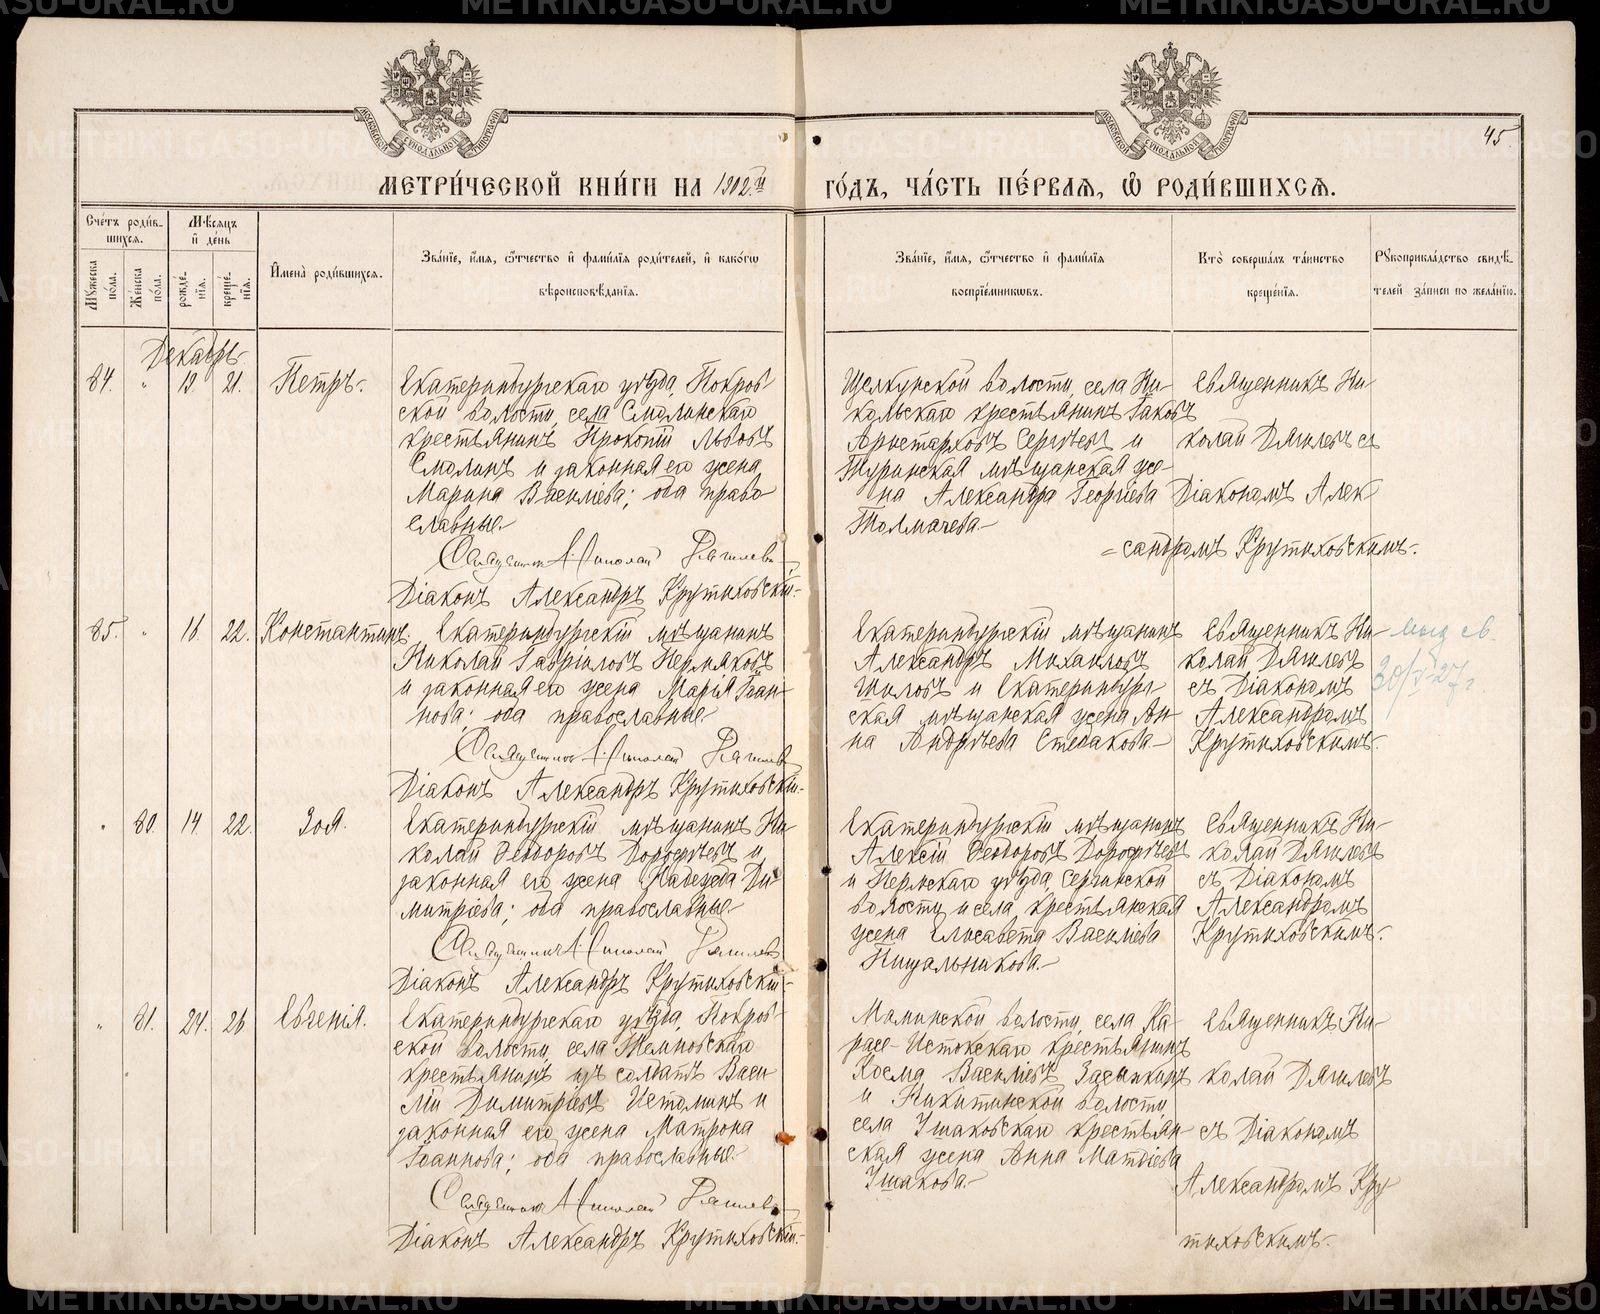 МЕТРИ́ЧЕСКОЙ КНИ́ГИ НА 1902й
ГО́ДЪ, ЧА́СТЬ ПЕ́РВАЯ, Ѽ РОДИ́ВШИХСѦ.
45.
Сче́тъ роди́в-
шихся.
Мѣ́сяцъ
и҆ де́нь
Мꙋ́жеска по́ла.
Же́нска по́ла.
рожде́-
нїя.
креще́-
нїя.
И҆мена̀ роди́вшихся.
Зва́нїе, и҆́мя, ѻ҆́тчество и҆ фами́лїя роди́телей, и҆ како́гѡ
вѣроисповѣ́данїя.
Зва́нїе, и҆́мя, ѻ҆́тчество и҆ фами́лїя
воспрїе́мникѡвъ.
Кто̀ соверша́лъ та́инство
креще́нїя.
Рꙋкоприкла́дство свидѣ́-
телей за́писи по жела́нїю.
Декабрь
84. „ 19 21. Петръ.
Екатеринбургскаго уѣзда, Покров
ской волости, села Смолинскаго
крестьянинъ Прокопій Львовъ
Смолинъ и законная его жена
Марина Васильева; оба право
славные.
Священникъ Николай Дягилевъ
Діаконъ Александръ Крутиховскій.
Щелкунской волости, села Ни-
кольскаго крестьянинъ Іаковъ
Аристарховъ Сергѣевъ и
Туринская мѣщанская же-
на Александра Георгіева
Толмачева.
Священникъ Ни-
колай Дягилевъ съ
Діакономъ Алек
=сандромъ Крутиховскимъ.
85. „ 16. 22. Константинъ.
Екатеринбургскій мѣщанинъ
Николай Гавріиловъ Пермяковъ
и законная его жена Марія Іоан-
нова; оба православные.
Священникъ Николай Дягилевъ
Діаконъ Александръ Крутиховскій.
Екатеринбургскій мѣщанинъ
Александръ Михаиловъ
Шиловъ и Екатеринбург-
ская мѣщанская жена Ан-
на Андреева Стебакова.
Священникъ Ни-
колай Дягилевъ
съ Діакономъ
Александромъ
Крутиховскимъ.
св.
30/V 27 г.
„ 80. 14. 22. Зоя.
Екатеринбургскій мѣщанинъ Ни-
колай Ѳеодоровъ Дорофѣевъ и
законная его жена Надежда Ди-
митріева; оба православные.
Священникъ Николай Дягилевъ
Діаконъ Александръ Крутиховскій.
Екатеринбургскій мѣщанинъ
Алексій Ѳеодоровъ Дорофѣевъ
и Пермскаго уѣзда, Сергинской
волости и села, крестьянская
жена Елисавета Васильева
Пищальникова.
Священникъ Ни-
колай Дягилевъ
съ Діакономъ
Александромъ
Крутиховскимъ.
„ 81. 24. 26 Евгенія.
Екатеринбургскаго уѣзда, Покров-
ской волости, села Темновскаго
крестьянинъ изъ солдатъ Васи
лій Димитріевъ Истоминъ и
законная его жена Матрона
Іоаннова; оба православные.
Священникъ Николай Дягилевъ
Діаконъ Александръ Крутиховскій.
Маминской волости, села Ка-
расе-Истокскаго крестьянинъ
Косма Васильевъ Засыпкинъ
и Никитинской волости,
села Ушаковскаго крестьян-
ская жена Анна Матвіева
Ушакова.
Священникъ Ни-
колай Дягилевъ
съ Діакономъ
Александромъ Кру
тиховскимъ.
METRIKI.GASO-URAL.RU